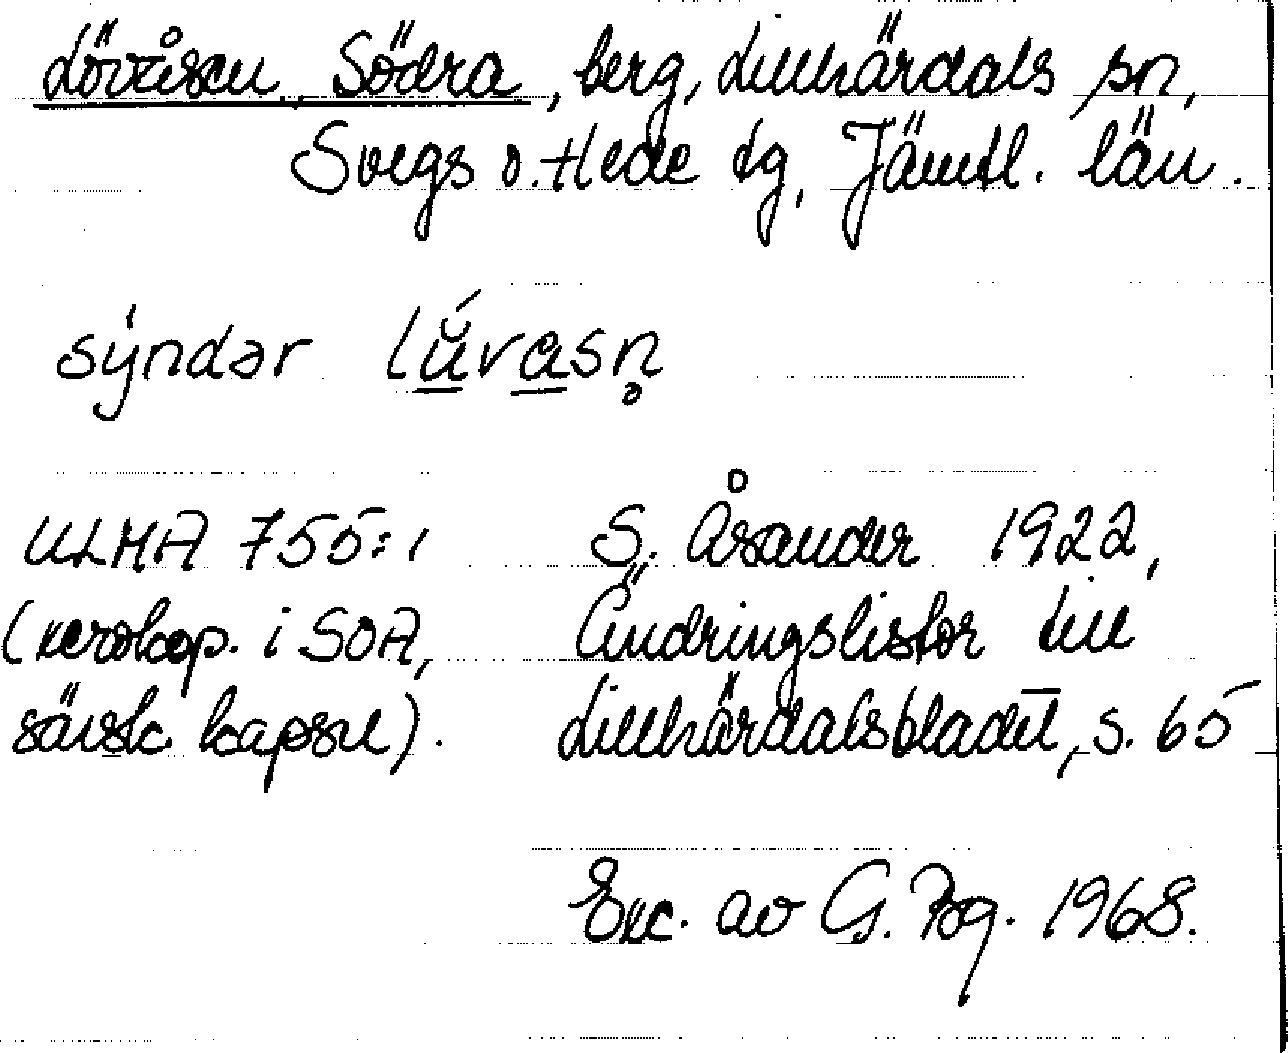 Lövåsen, Södra, berg, Lillhärdals sn,
Svegs o. Hede tg, Jämtl. län.
sýndər lúvasn̥
ULMA 755:1
(xerokop. i SOA,
särsk. kapsel).
S. Åsander 1922,
Ändringslistor till
Lillhärdalsbladet, s. 65
Exc. av G. 1968.